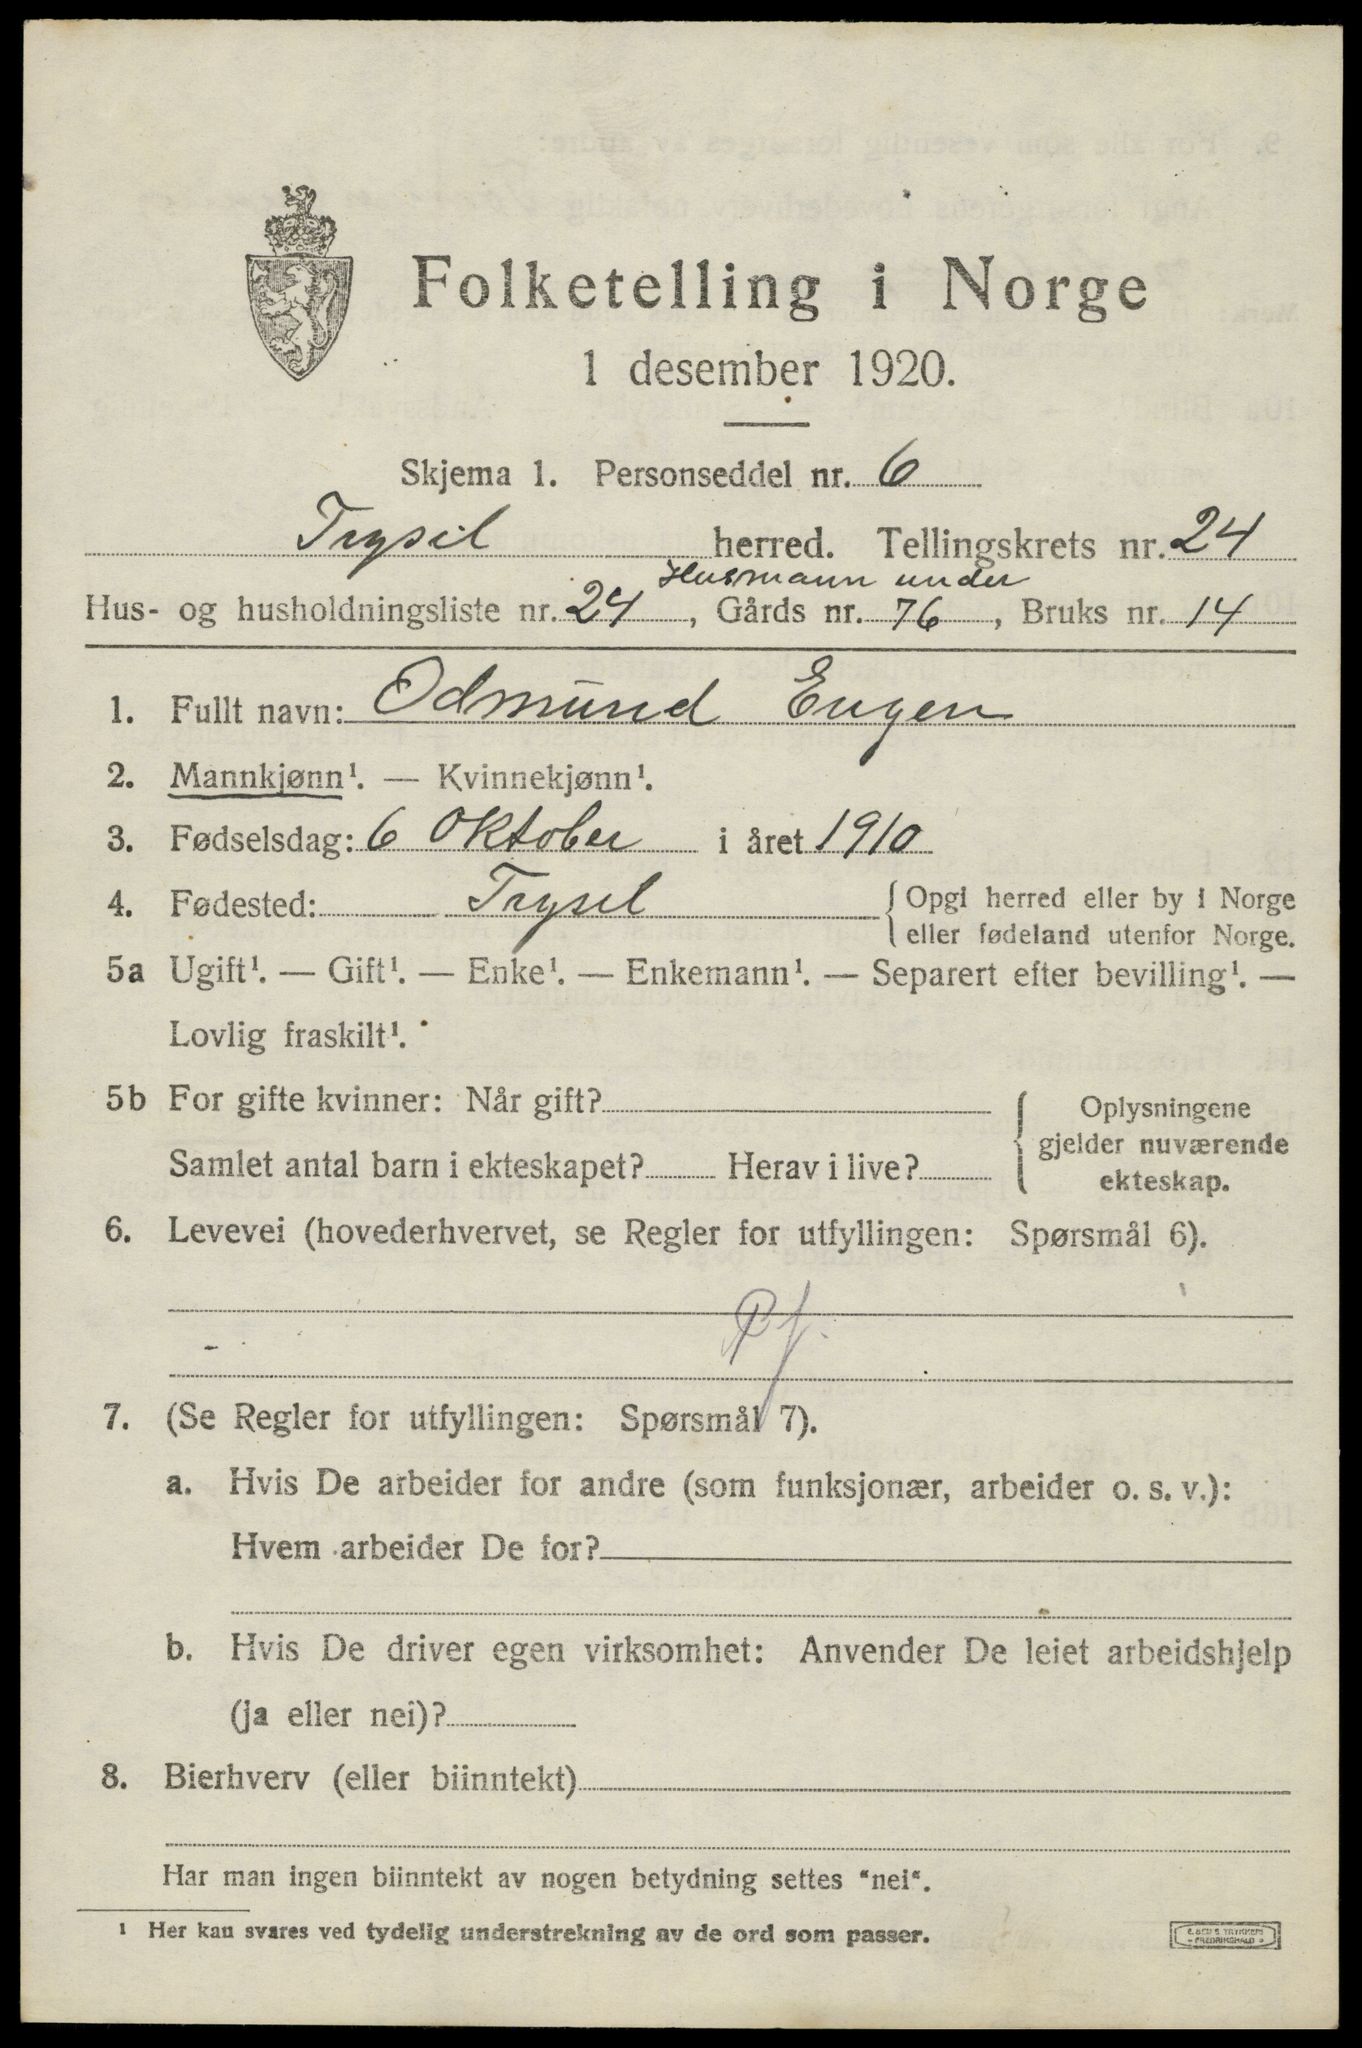 Folketelling i Norge
1 desember 1920.
Skjema 1. Personseddel nr. 6
Trysil herred. Tellingskrets nr. 24
Husmann under
Hus- og husholdningsliste nr. 24, Gårds nr. 76, Bruks nr. 14
1. Fullt navn: Odmund Eugen
2. Mannkjønn¹. — Kvinnekjønn¹.
3. Fødselsdag: 6 Oktober i året 1910
4. Fødested: Trysil {Opgi herred eller by i Norge
eller fødeland utenfor Norge.
5a Ugift¹. — Gift¹. — Enke¹. — Enkemann¹. — Separert efter bevilling¹. —
Lovlig fraskilt¹.
5b For gifte kvinner: Når gift?
Samlet antal barn i ekteskapet? Herav i live?
{Oplysningene
gjelder nuværende
ekteskap.
6. Levevei (hovederhvervet, se Regler for utfyllingen: Spørsmål 6).
Pf.
-
7. (Se Regler for utfyllingen: Spørsmål 7).
a. Hvis De arbeider for andre (som funksjonær, arbeider o. s. v.):
Hvem arbeider De for?
b. Hvis De driver egen virksomhet: Anvender De leiet arbeidshjelp
(ja eller nei)?
8. Bierhverv (eller biinntekt)
Har man ingen biinntekt av nogen betydning settes "nei".
¹ Her kan svares ved tydelig understrekning av de ord som passer.